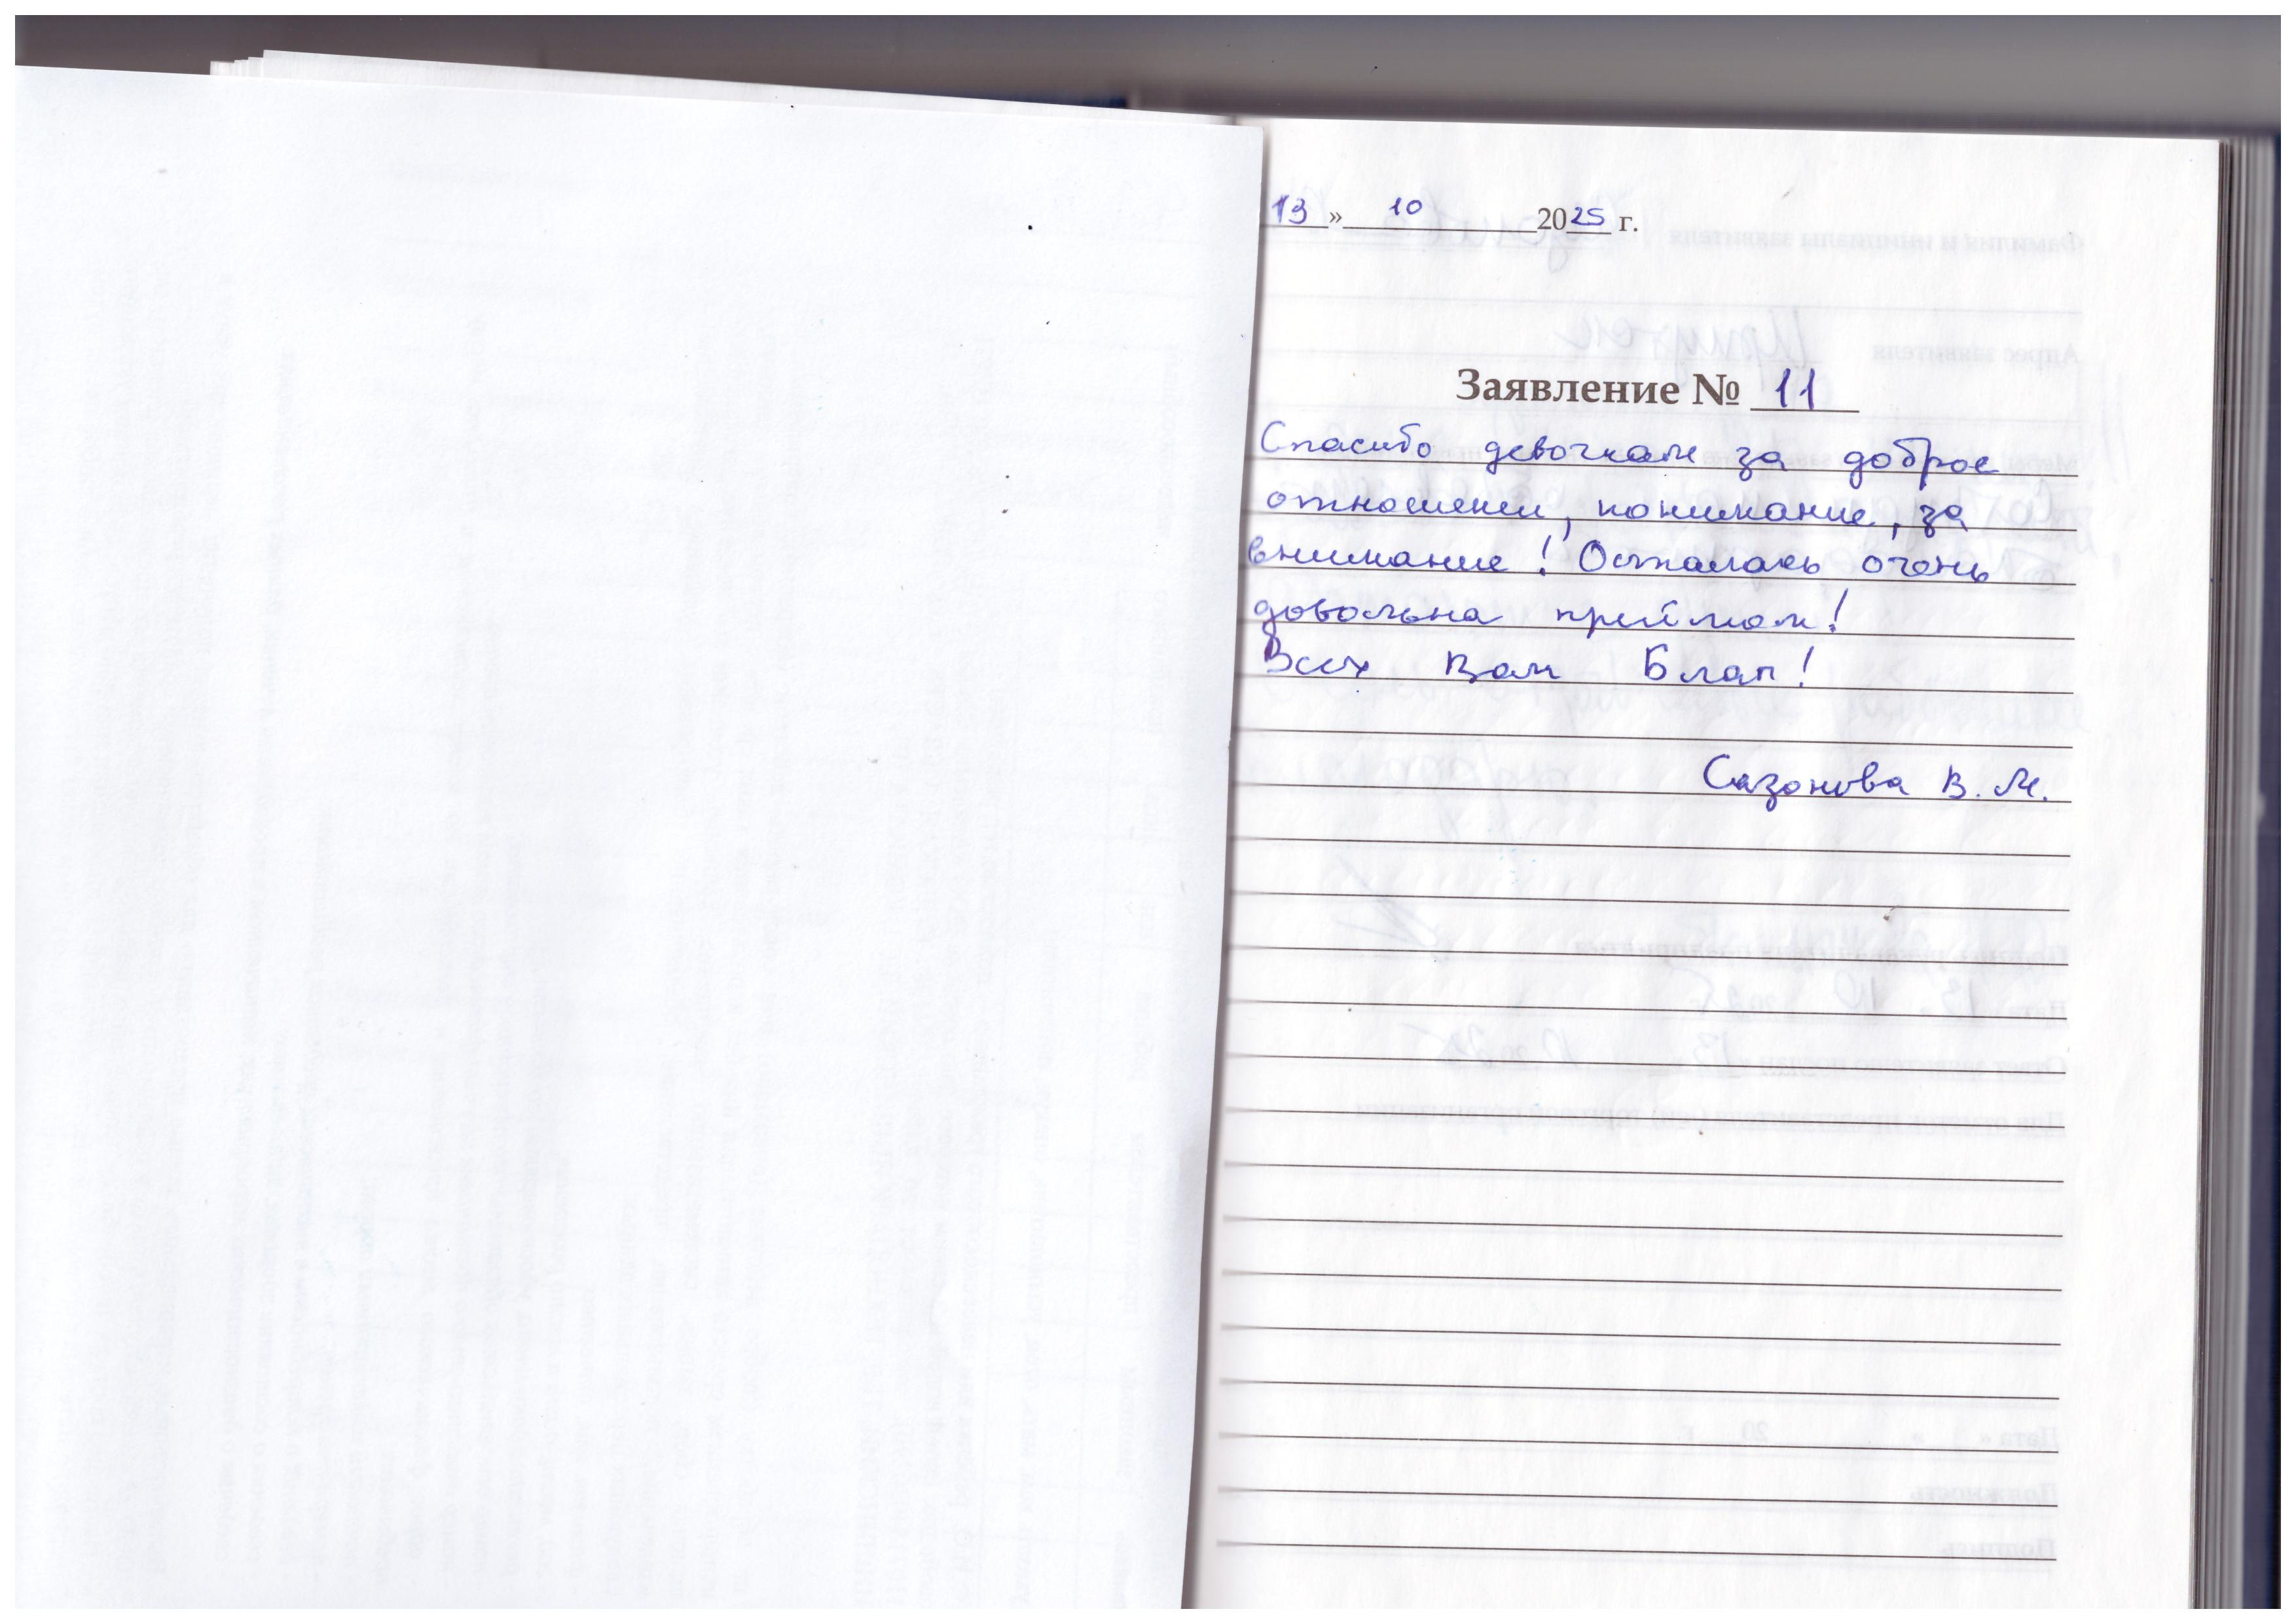 13 » 10 2025 г.
Заявление № 11
Спасибо девочкам за доброе
отношении, понимание, за
внимание! Осталась очень
довольна приймом!
Всех Вам Благ!
Сазонова В. М.